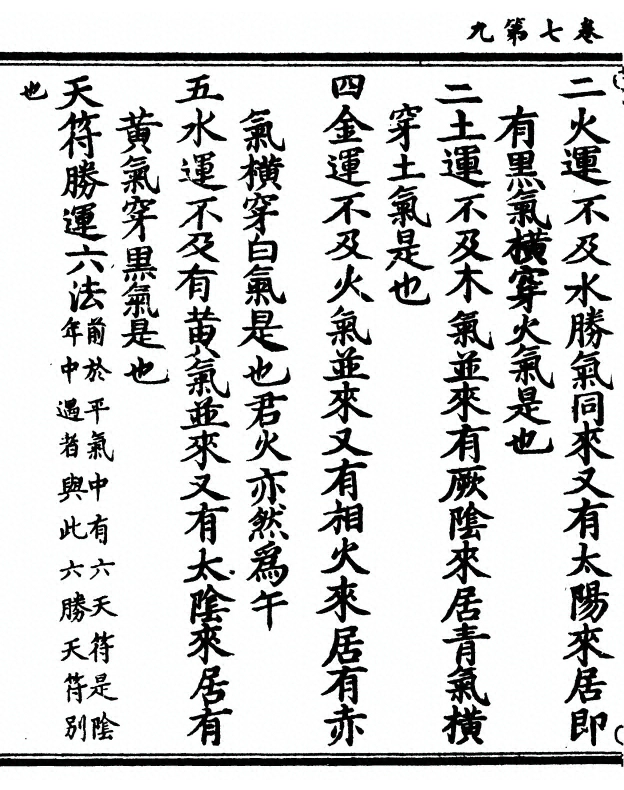 卷七第九
二火運不及水勝氣同來又有太陽來居即
有黑氣橫穿火氣是也
二土運不及木氣並來有厥陰來居青氣橫
穿土氣是也
四金運不及火氣並來又有相火來居有赤
氣橫穿白氣是也君火亦然爲午
五水運不及有黃氣並來又有太陰來居有
黃氣穿黑氣是也
天符勝運六法前於平氣中有六天符是陰
年中遇者與此六勝天符別
也